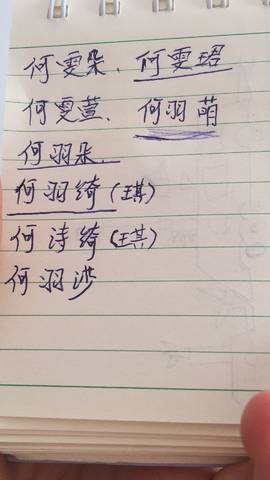 何雯朵、何雯珺
何雯萱、何羽萌
何羽朵、
何羽绮(琪)
何诗绮(琪)
何羽涉